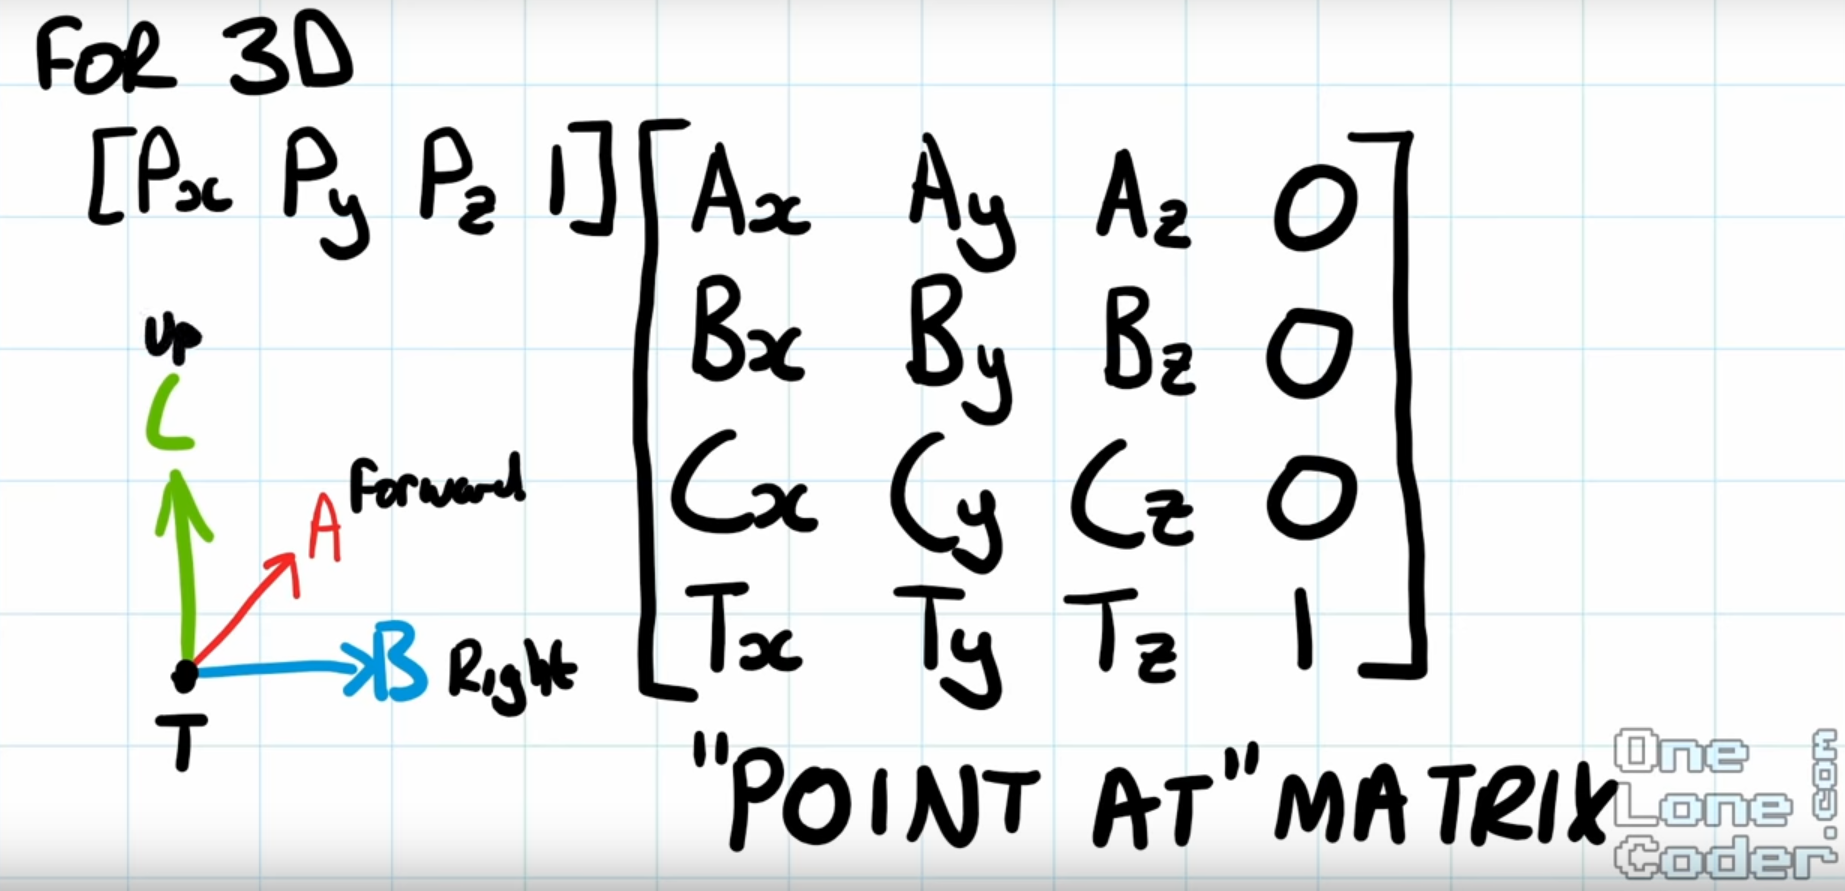 FOR 3D
[Px Py Pz 1] [Ax Ay Az 0
Bx By Bz 0
Cx Cy Cz 0
Tx Ty Tz 1]
Up
C
A Forward
B Right
T
"POINT AT" MATRIX
One
Lone
Coder
.com